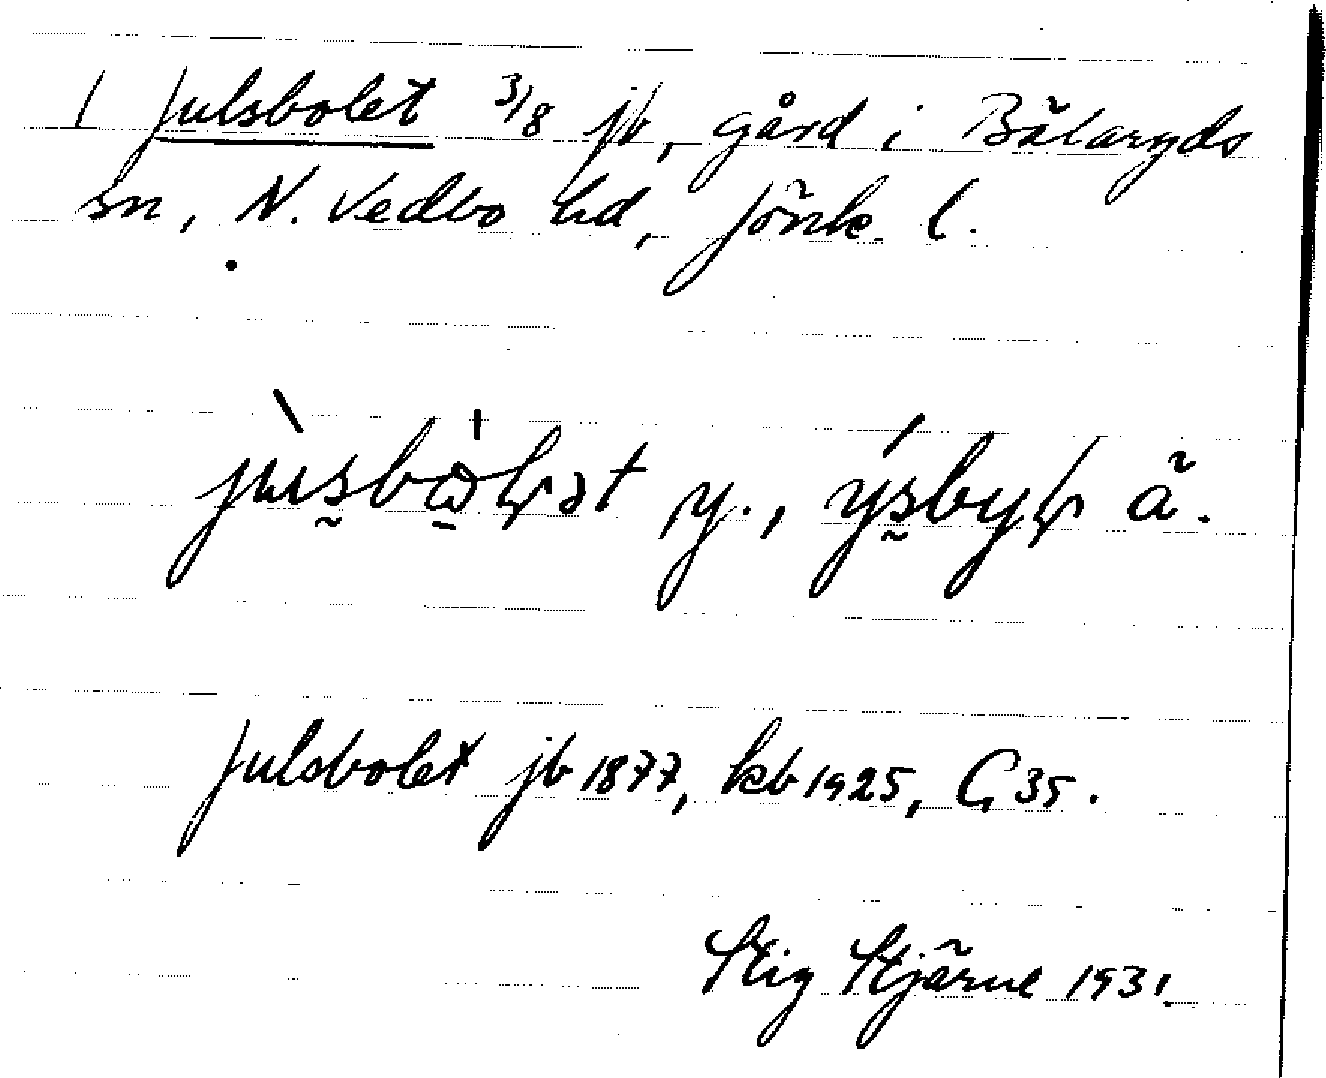 1 Julsbolet 3/8 jb, gård i Bälaryds
sn, N. Vedbo hd, Jönk. l.
y., ä.
Julsbolet jb 1877, kb 1925, G 35.
Stig Stjärne 1931.